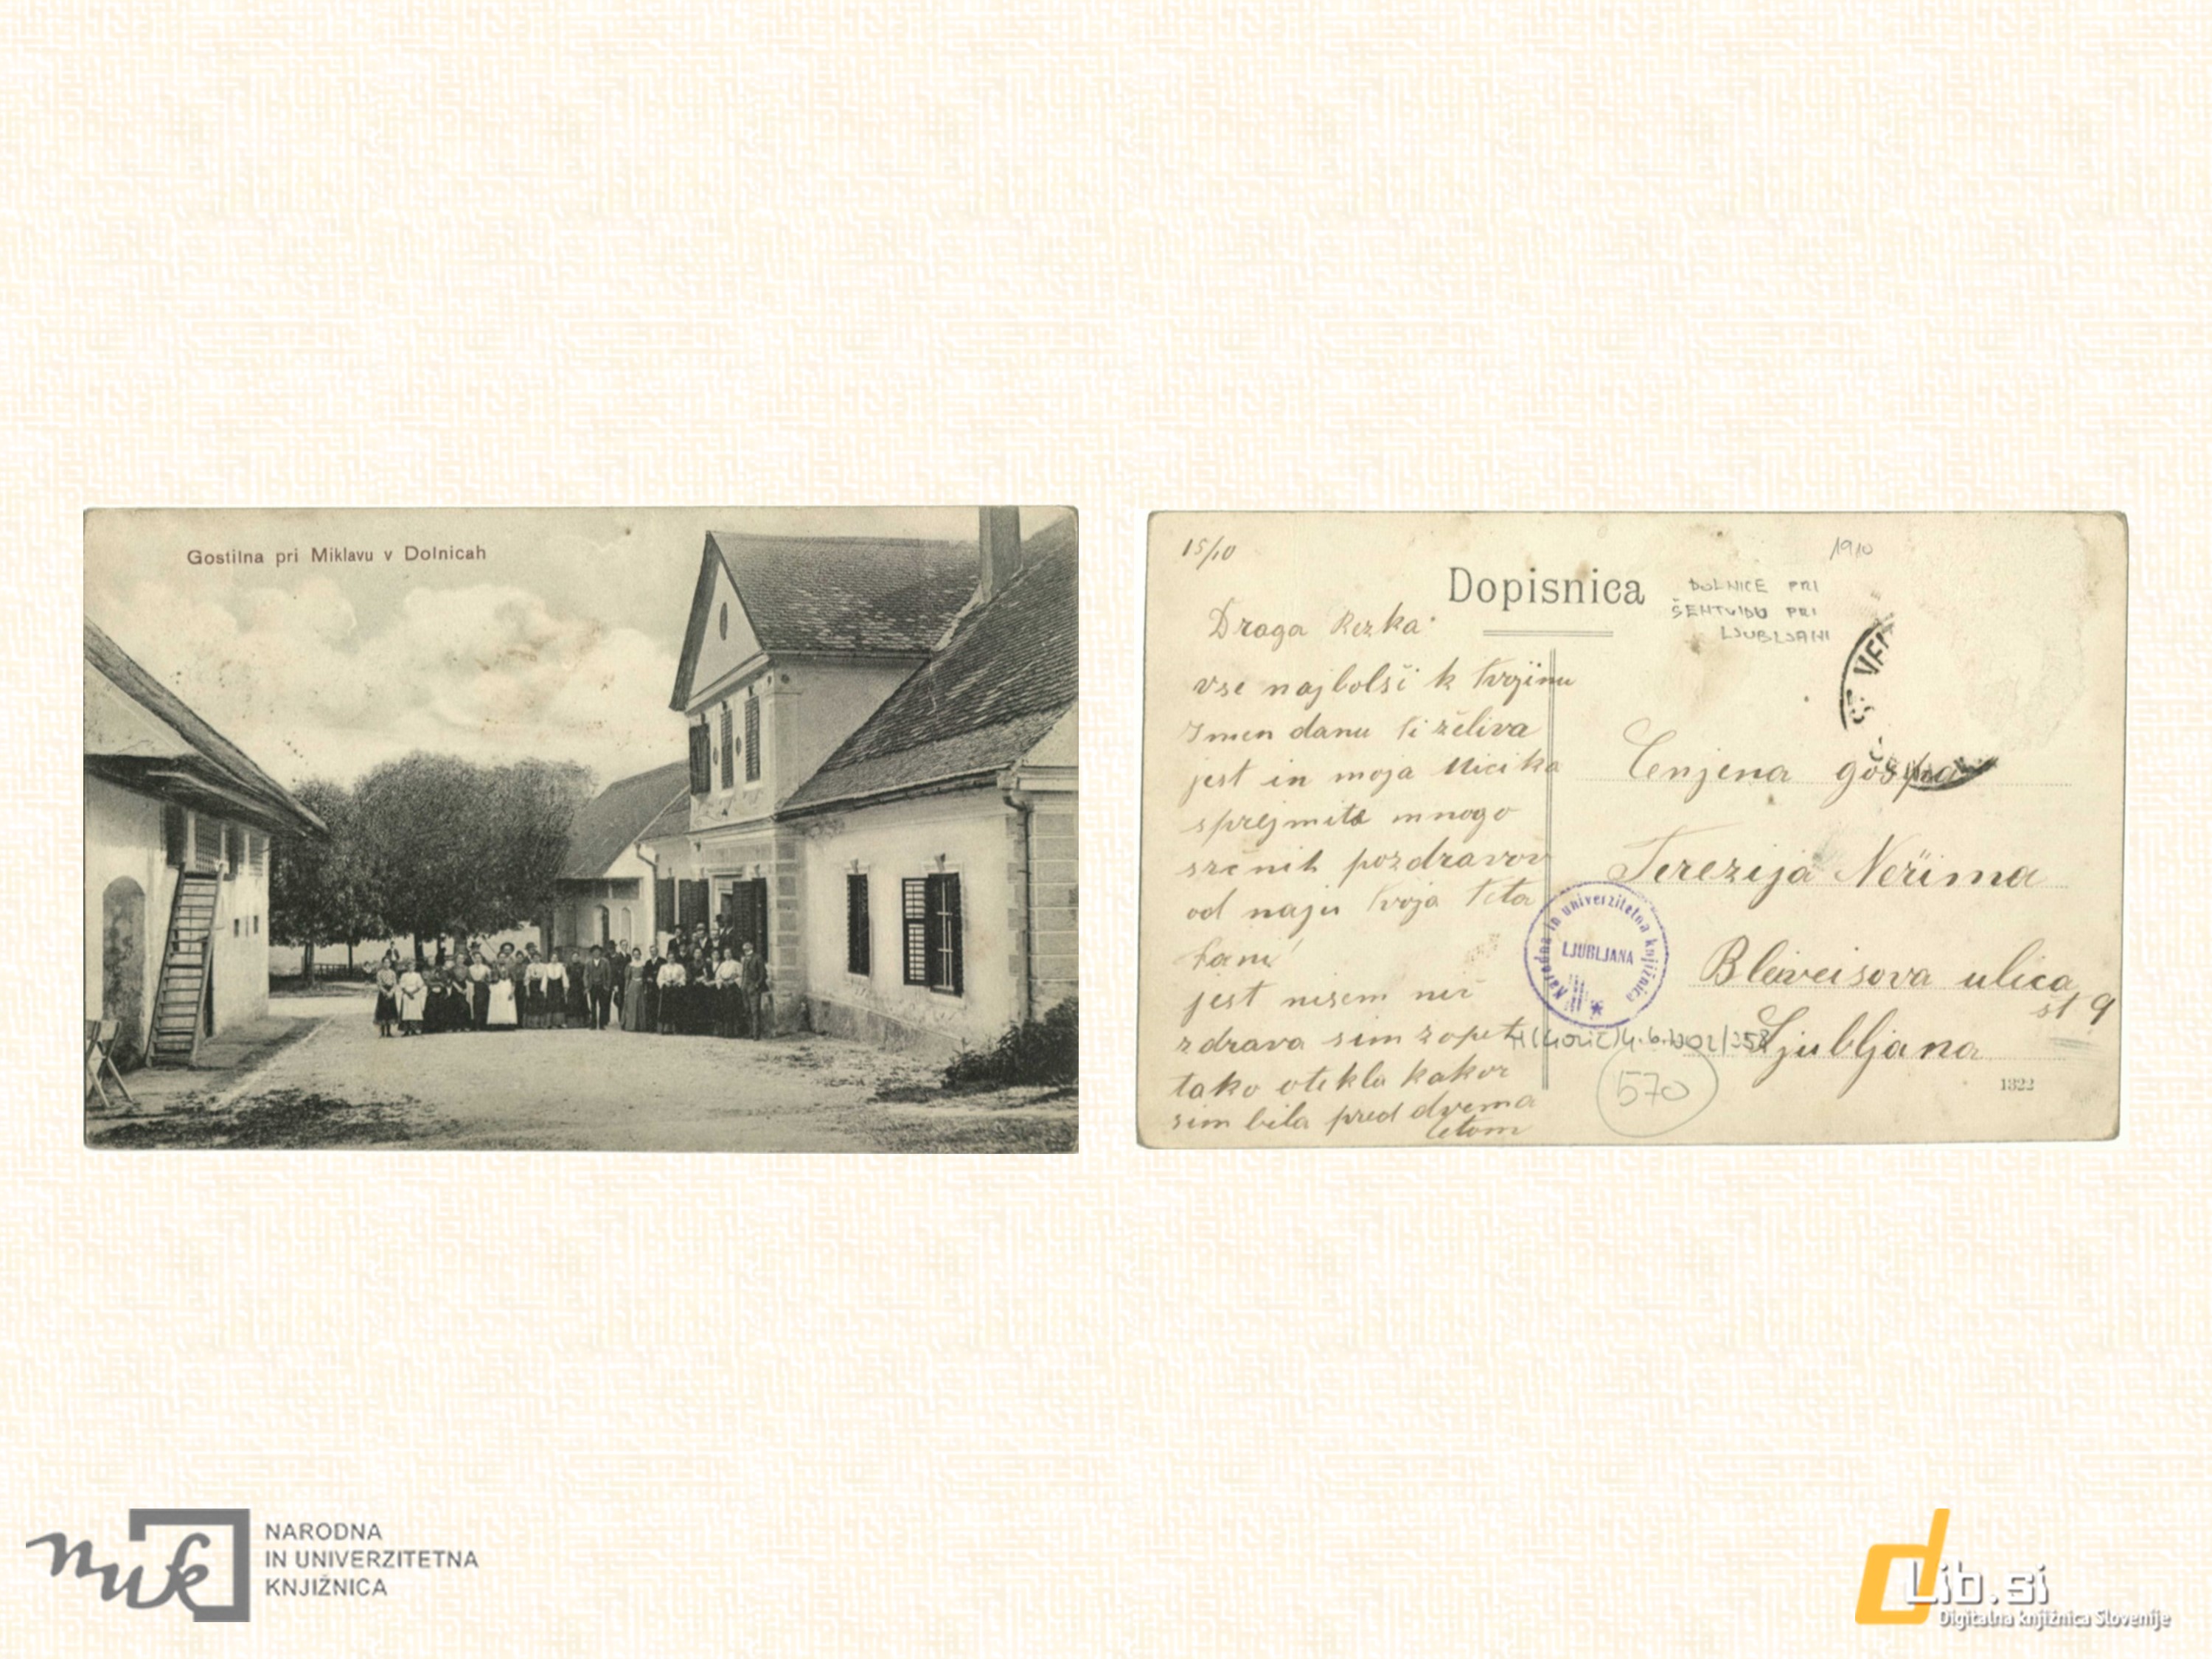 Gostilna pri Miklavu v Dolnicah
15/10
1910
Dopisnica
DOLNICE PRI
ŠENTVIDU PRI
LJUBLJANI
Draga Rezka
vse najbolši k tvojimu
Imen danu ti želiva
jest in moja Micika
sprejmite mnogo
srčnih pozdravov
od naju tvoja teta
jest nisem nič
zdrava sim zopet
tako otekla kakor
sim bila pred dvema
letom
ST. VEI
Cenjena gospa
Terezija
Bleiweisova ulica
št 9
Ljubljana
Narodna in univerzitetna knjižnica
LJUBLJANA
570
1322
nuk
NARODNA
IN UNIVERZITETNA
KNJIŽNICA
dLib.si
Digitalna knjižnica Slovenije